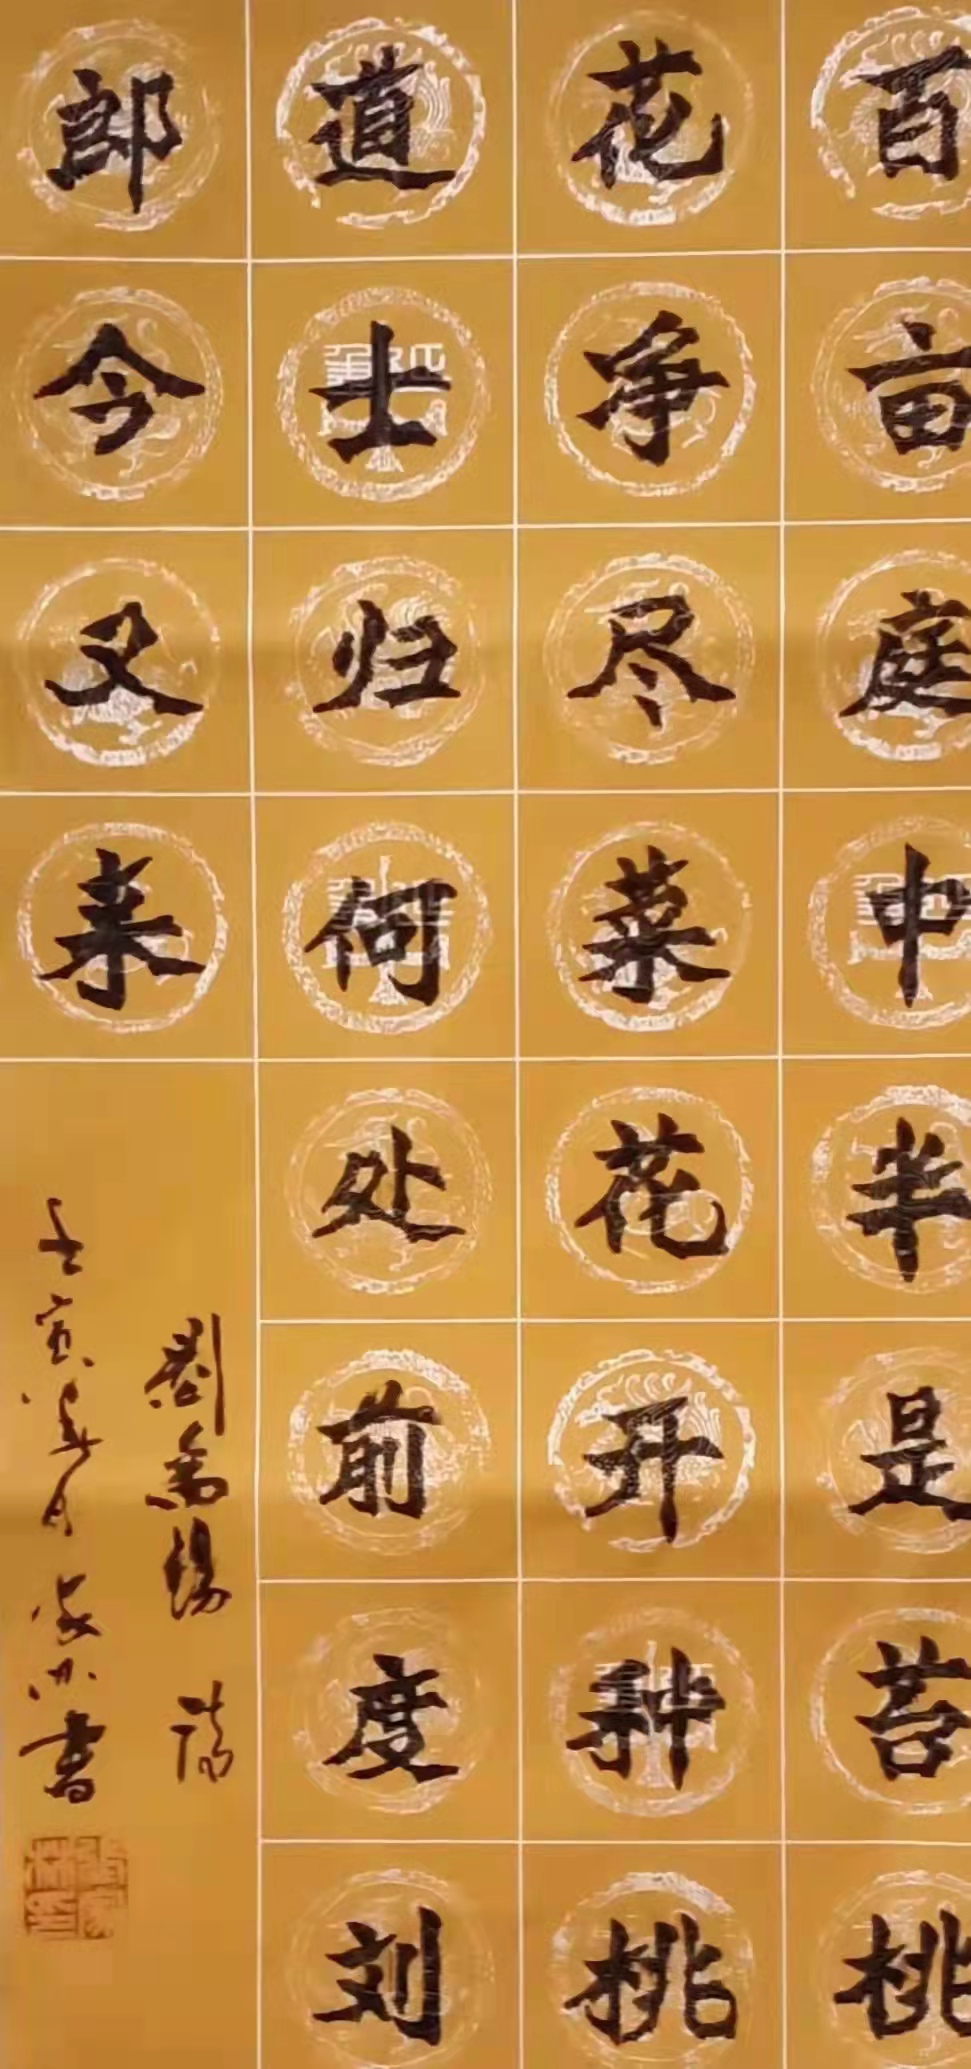 百亩庭中半是苔桃
花争尽菜花开种桃
道士归何处前度刘
郎今又来
劉禹锡 诗
壬寅年夏月 家林書